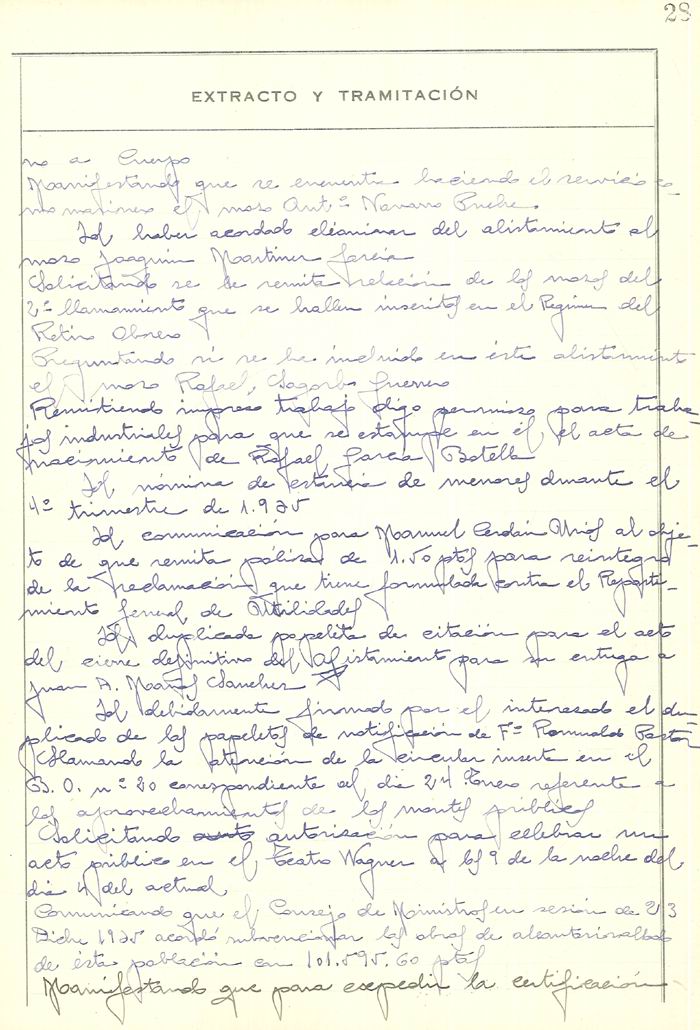 28
EXTRACTO Y TRAMITACIÓN
no a Cuerpo
Manifestando que se encuentra haciendo el servicio co-
mo marinero el mozo Antº Navarro Puche.
Id haber acordado eliminar del alistamiento al
mozo Joaquin Martinez Garcia
Solicitando se le remita relación de los mozos del
2º llamamiento que se hallen inscritos en el Regimen del
Retiro Obrero
Preguntando si se ha incluido en éste alistamient
el mozo Rafael Sagorb Guerrero
Remitiendo impreso trabajo digo permiso para traba-
jos industriales para que se estampe en él el acta de
nacimiento de Rafael Garcia Botella
Id nómina de estancia de menores durante el
4º trimestre de 1.925
Id comunicación para Manuel Cerdán al obje-
to de que remita pólizas de 1.50 ptas para reintegro
de la reclamación que tiene formulada contra el Reparti-
miento General de Utilidades
Id. duplicada papeleta de citación para el acto
del cierre definitivo del Alistamiento para su entrega a
Juan A. Sanchez
Id debidamente firmado por el interesado el du-
plicado de las papeletas de notificación de Fº Romualdo Pastor
Llamando la atención de la circular inserta en el
B. O. nº 20 correspondiente al dia 24 Enero referente a
los aprovechamientos de los montes públicos
Solicitando autorización para celebrar un
acto público en el Teatro Wagner a las 9 de la noche del
dia 4 del actual
Comunicando que el Consejo de Ministros en sesión de 23
Dicbre 1925 acordó subvencionar las obras de alcantarillado
de ésta población con 101.595.60 ptas
Manifestando que para expedir la certificación